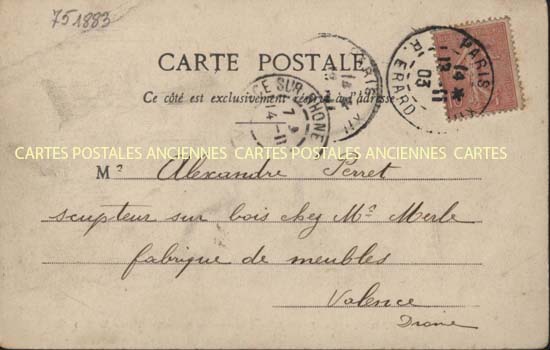 751883
CARTE POSTALE
Ce côté est exclusivement réservé à l'adresse
PARIS
14 * 11
03
R. ERARD
PARIS
14
CE SUR RHONE
7
14 11
CARTES POSTALES ANCIENNES CARTES POSTALES ANCIENNES CARTES
Mr Alexandre Perret
sculpteur sur bois chez Mr Merle
fabrique de meubles
Valence
Drome